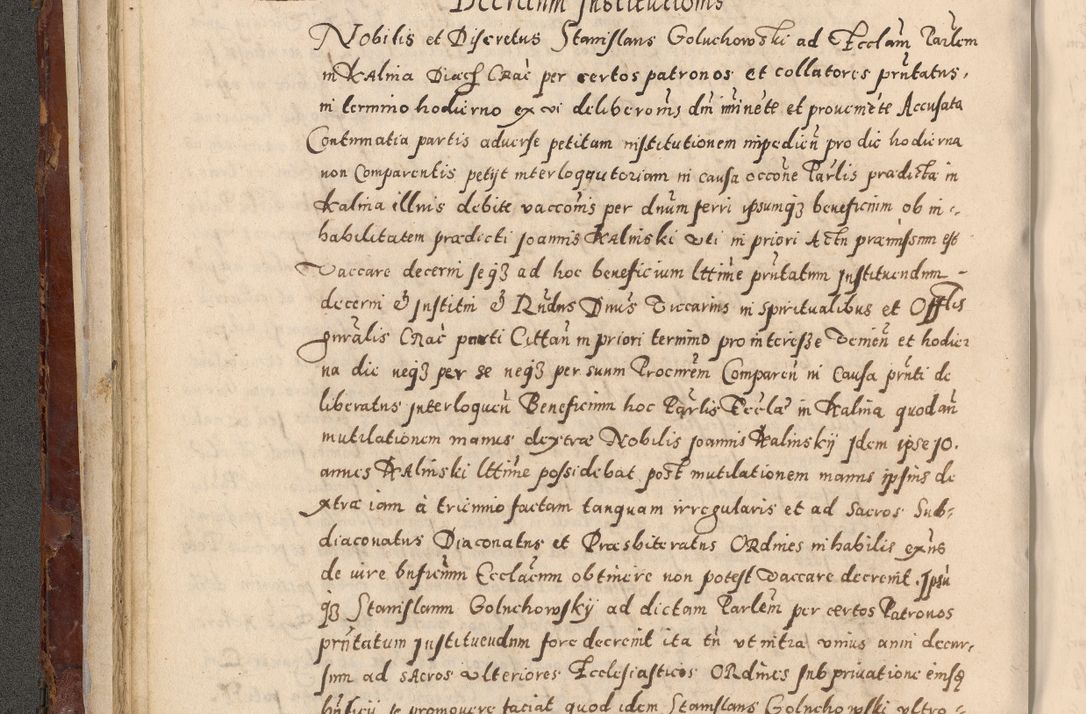 Decretum Institucionis
Nobilis et Discretus Stanislaus Goluchowski ad Eccl̃am Parlem
in Kalina Diaec̃ Crac̃ per certos patronos et collatores pr̃ntatus,
in termino hodierno ex vi deliberom̃s dm̃ im̃inẽte et prouemẽte Accusata
Contumatia partis aduerse petitam institutionem impedieñ pro die hodierna
non Comparentis petijt interloqqutoriam in causa occom̃e Par̃lis praedicta in
Kalina illius debite vaccom̃s per dnum ferri ipsumq3 beneficium ob in-
habilitatem praedicti Joannis Kalinski vti in priori Actu praemissum est
Vaccare decerni seq3 ad hoc beneficium lttime pr̃ntatum Instituendum
decerni & Institui & Rñdus Dnus Viccarius in spiritualibus et Offtlis
gnr̃alis Crac̃ parti Cittañ in priori termino pro interesse Venieñ et hodier
na die neq3 per se neq3 per suum Procm̃rem Compareñ in Causa pr̃nti de
liberatus interloqueñ Beneficium hoc Par̃lis Eccla᷎ in Kalina quod añ
mutilationem manus dextrae Nobilis Joannis Kalinskij Idem ipse Jo.
annes Kalinski lttime possidebat post mutilationem manus ipsius de
xtrae iam à triennio factam tanquam irregularis et ad sacros Sub-
diaconatus Diaconatus et Praesbiteratus Ordines inhabilis exñs
de iure bnficium Ecclãcum obtinere non potest Vaccare decreuit. Ipsũ
q3 Stanislaum Goluchowskij ad dictam Parlem̃ per certos Patronos
pr̃ntatum Instituendum fore decreuit ita tñ vt intra vnius anni decur-
sum ad sacros vlteriores Ecclesiasticos Ordines sub priuatione eiusq̃
bñficij se promouere faciat quod idem Stanislaus Goluchowski vltro-